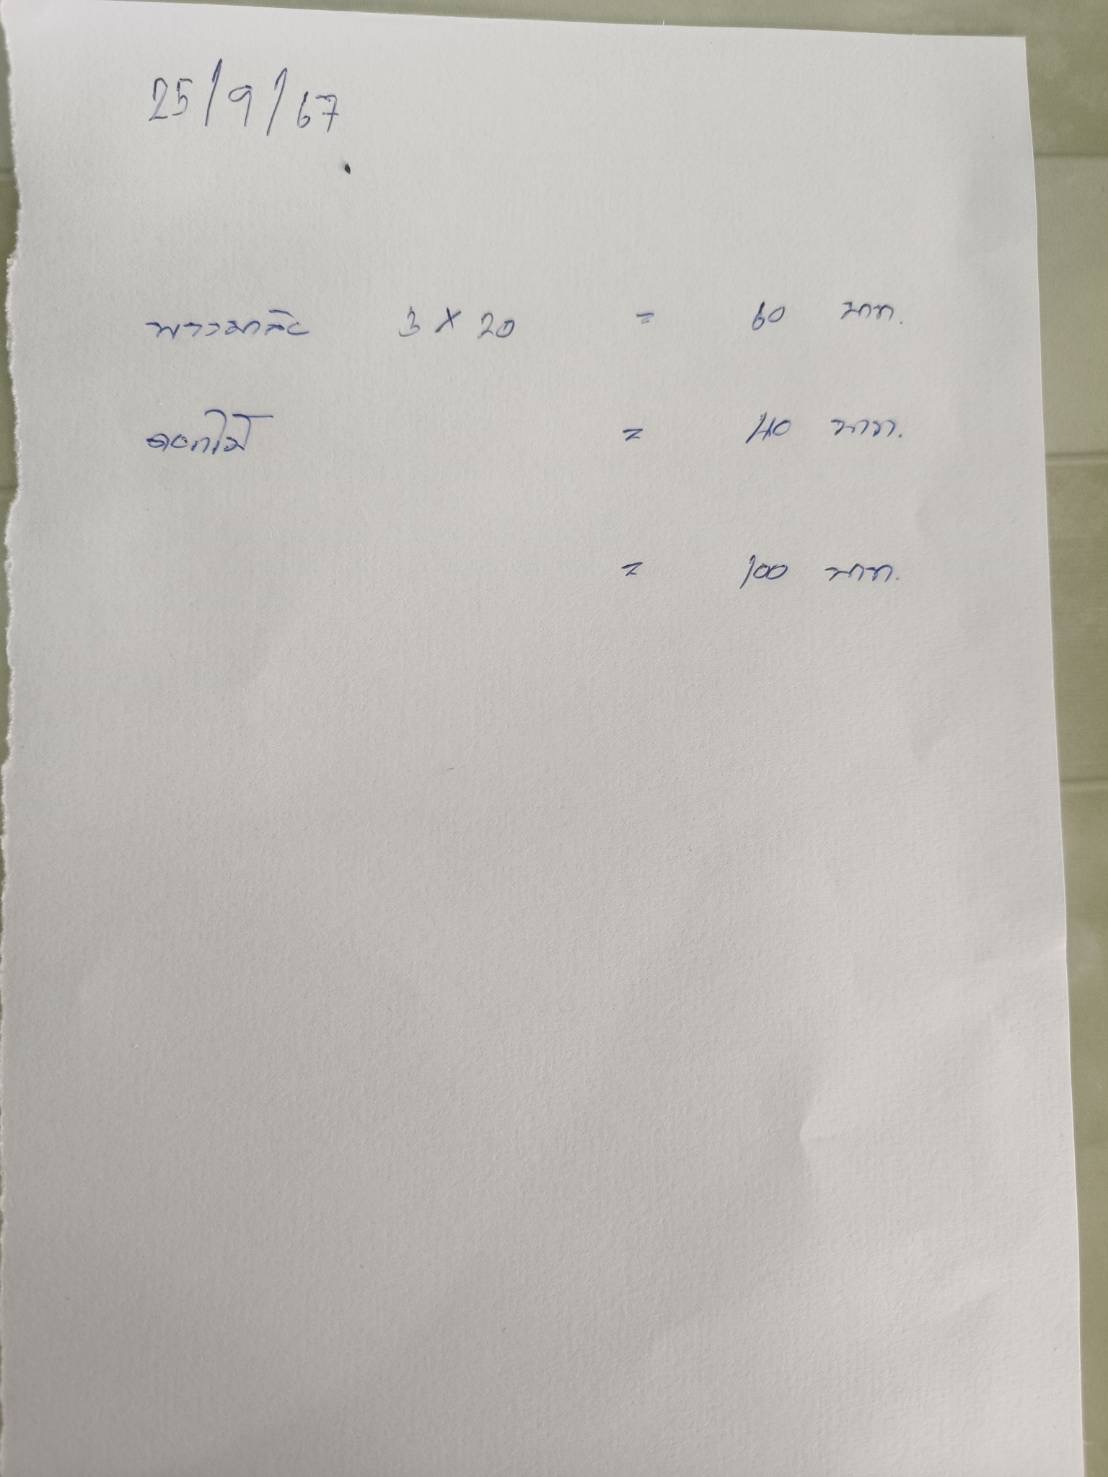 25/9/67
พวงมาลัย 3 × 20 = 60 บาท.
ดอกไม้ = 40 บาท.
= 100 บาท.